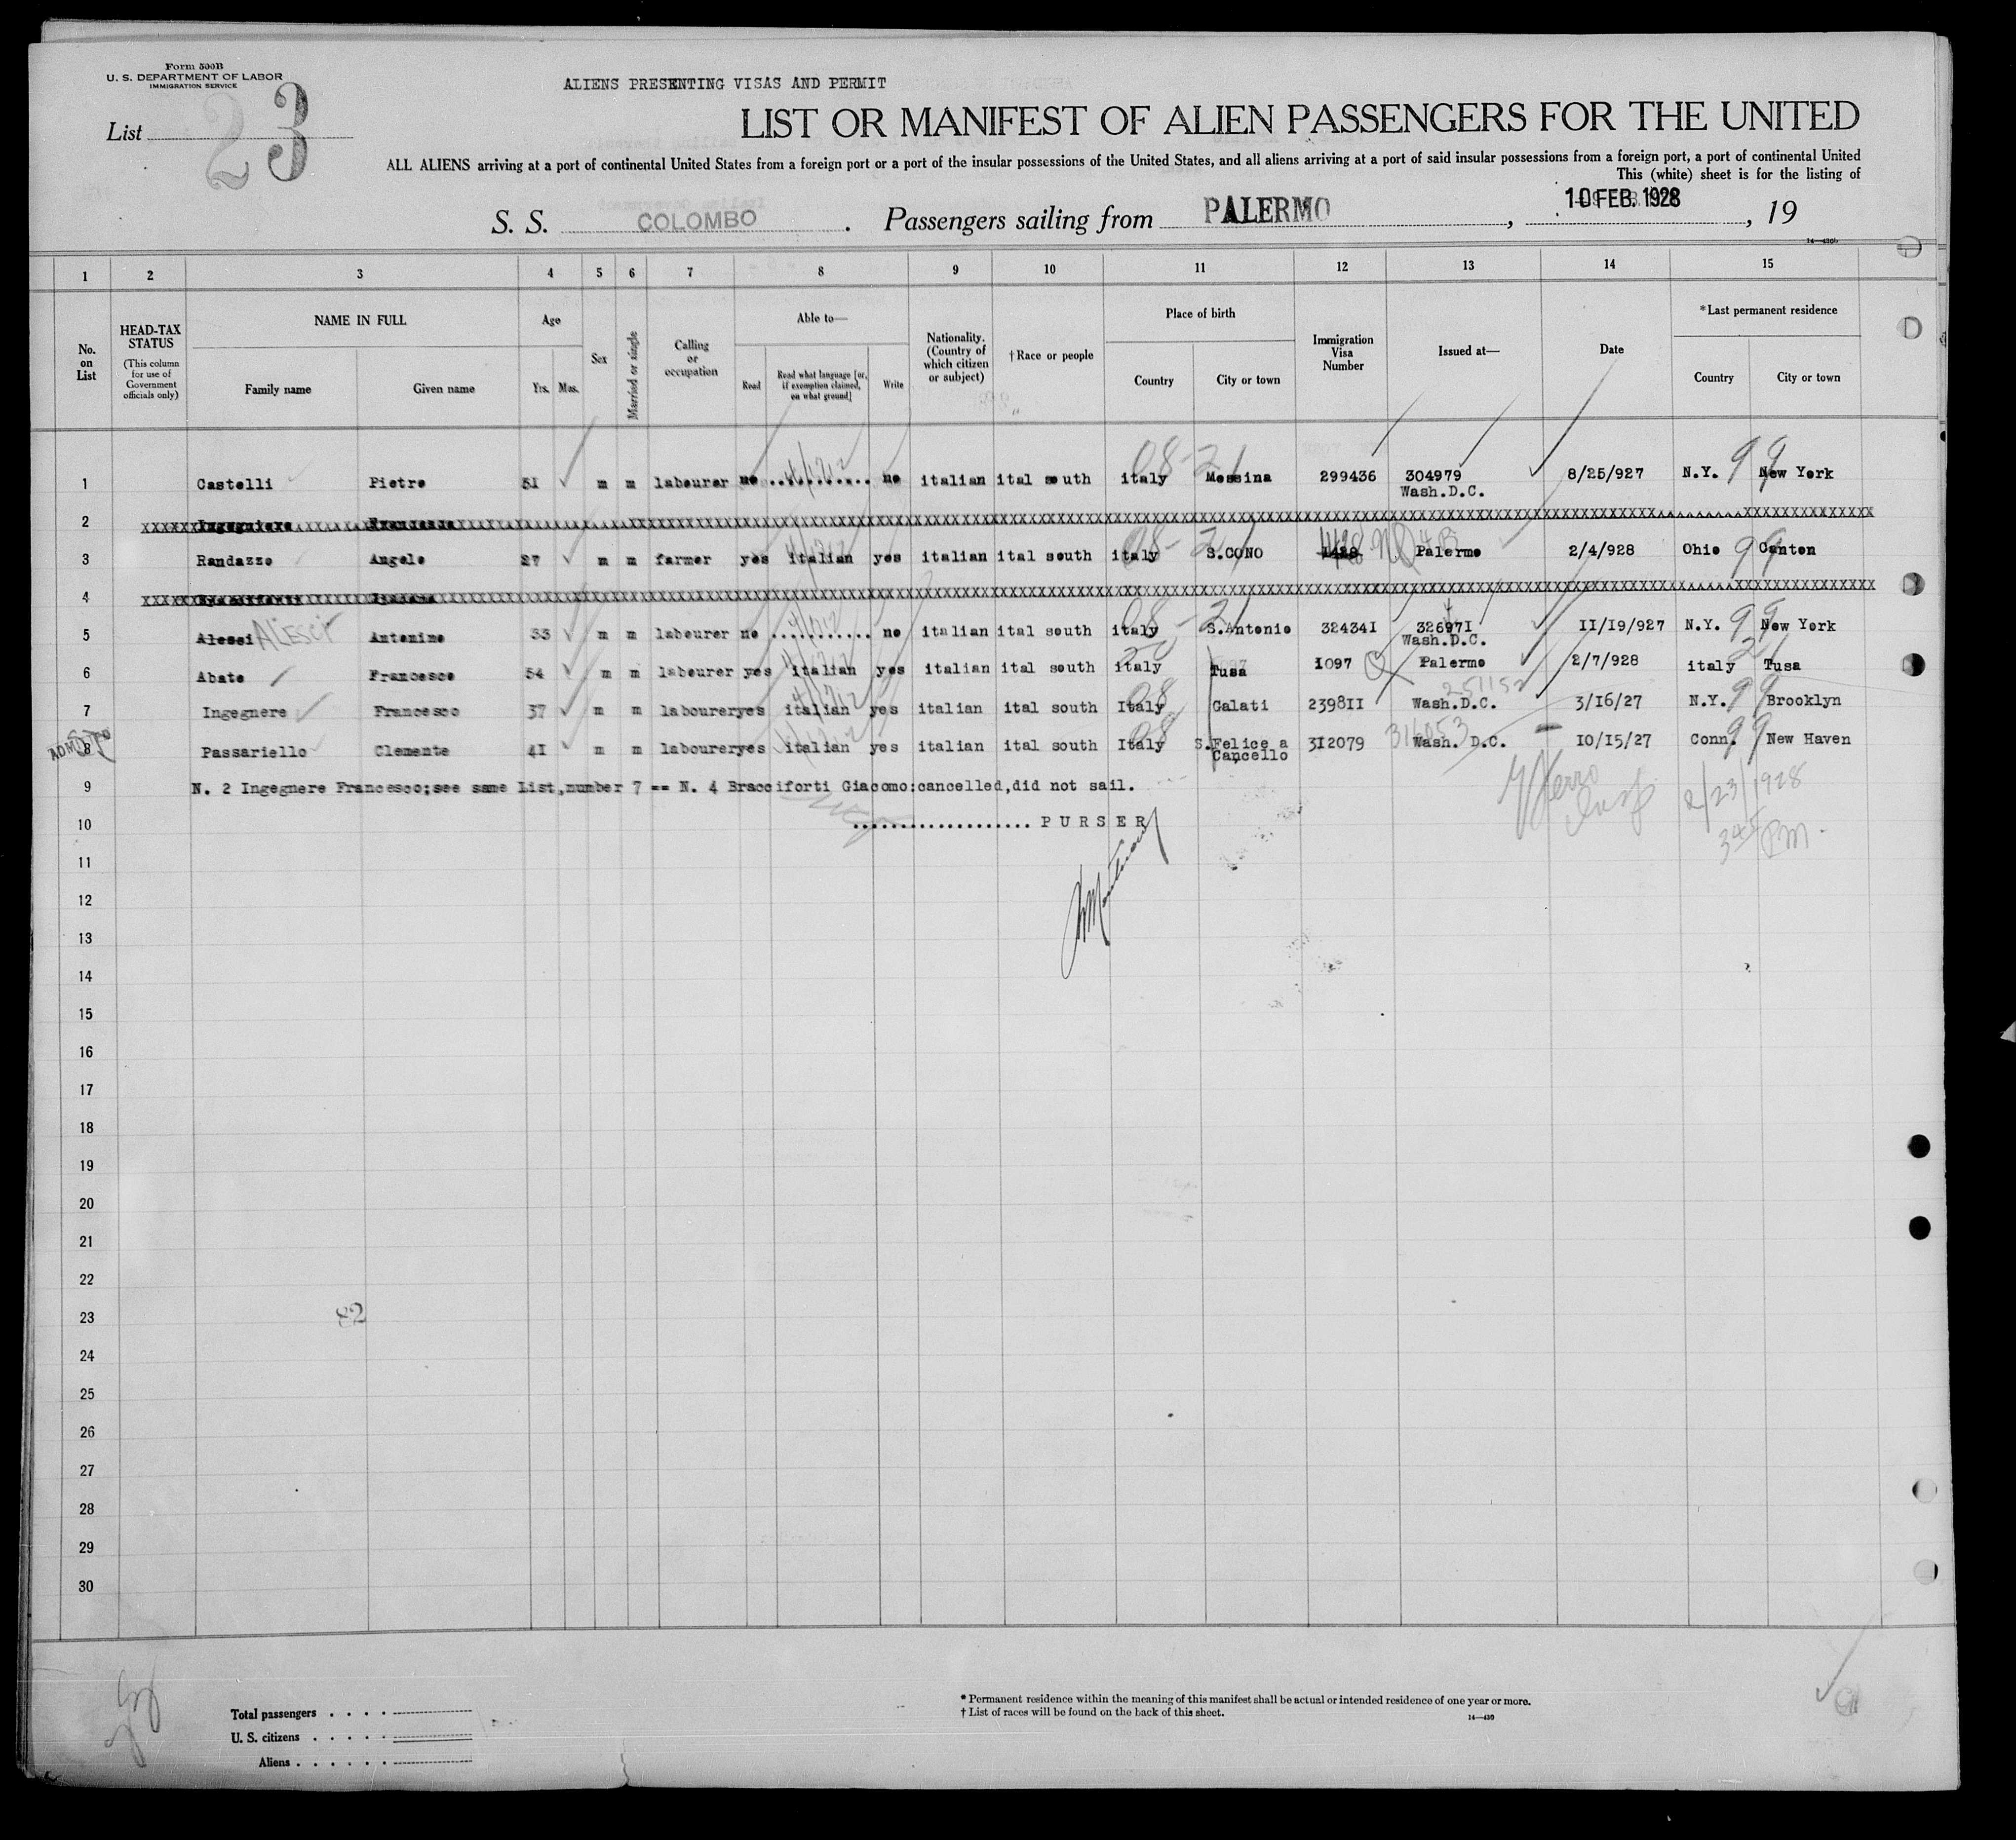 Form 500B
U. S. DEPARTMENT OF LABOR
IMMIGRATION SERVICE
List 23
ALIENS PRESENTING VISAS AND PERMIT
LIST OR MANIFEST OF ALIEN PASSENGERS FOR THE UNITED
ALL ALIENS arriving at a port of continental United States from a foreign port or a port of the insular possessions of the United States, and all aliens arriving at a port of said insular possessions from a foreign port, a port of continental United
This (white) sheet is for the listing of
S. S. COLOMBO. Passengers sailing from PALERMO, 10 FEB. 1928, 19
14—430b
1 2 3 4 5 6 7 8 9 10 11 12 13 14 15
No. on List
HEAD-TAX STATUS (This column for use of Government officials only)
NAME IN FULL
Family name Given name
Age
Yrs. Mos.
Sex
Married or single
Calling or occupation
Able to—
Read Read what language [or, if exemption claimed, on what ground] Write
Nationality. (Country of which citizen or subject)
†Race or people
Place of birth
Country City or town
Immigration Visa Number
Issued at—
Date
*Last permanent residence
Country City or town
1 Castelli Pietro 51 m m labourer no ........... no italian ital south italy Messina 299436 304979 Wash.D.C. 8/25/927 N.Y. New York
2 Ingegniere Francesco
3 Randazzo Angelo 27 m m farmer yes italian yes italian ital south italy S.CONO 1428 Palermo 2/4/928 Ohio Canton
4
5 Alessi ALESCI Antonino 33 m m labourer no ........... no italian ital south italy S.Antonio 324341 326971 Wash.D.C. 11/19/927 N.Y. New York
6 Abate Francesco 54 m m labourer yes italian yes italian ital south italy Tusa 1097 Palermo 2/7/928 italy Tusa
7 Ingegnere Francesco 37 m m labourer yes italian yes italian ital south Italy Galati 239811 251152 Wash.D.C. 3/16/27 N.Y. Brooklyn
ADMITTED
8 Passariello Clemente 41 m m labourer yes italian yes italian ital south Italy S.Felice a Cancello 312079 Wash. D.C. 10/15/27 Conn. New Haven
9 N. 2 Ingegnere Francesco;see same List,number 7 == N. 4 Bracciforti Giacomo:cancelled,did not sail.
2/23/1928
10 ................... PURSER
345 PM.
11
12
13
14
15
16
17
18
19
20
21
22
23
24
25
26
27
28
29
30
Total passengers . . . .
U. S. citizens . . . . .
Aliens . . . . . .
* Permanent residence within the meaning of this manifest shall be actual or intended residence of one year or more.
† List of races will be found on the back of this sheet.
14—430